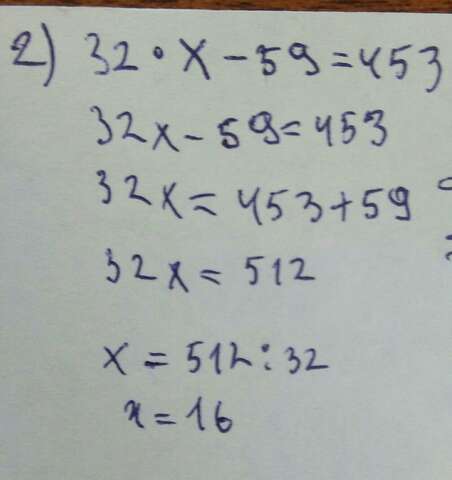 2) 32 • x - 59 = 453
32x - 59 = 453
32x = 453 + 59
32x = 512
x = 512 : 32
x = 16